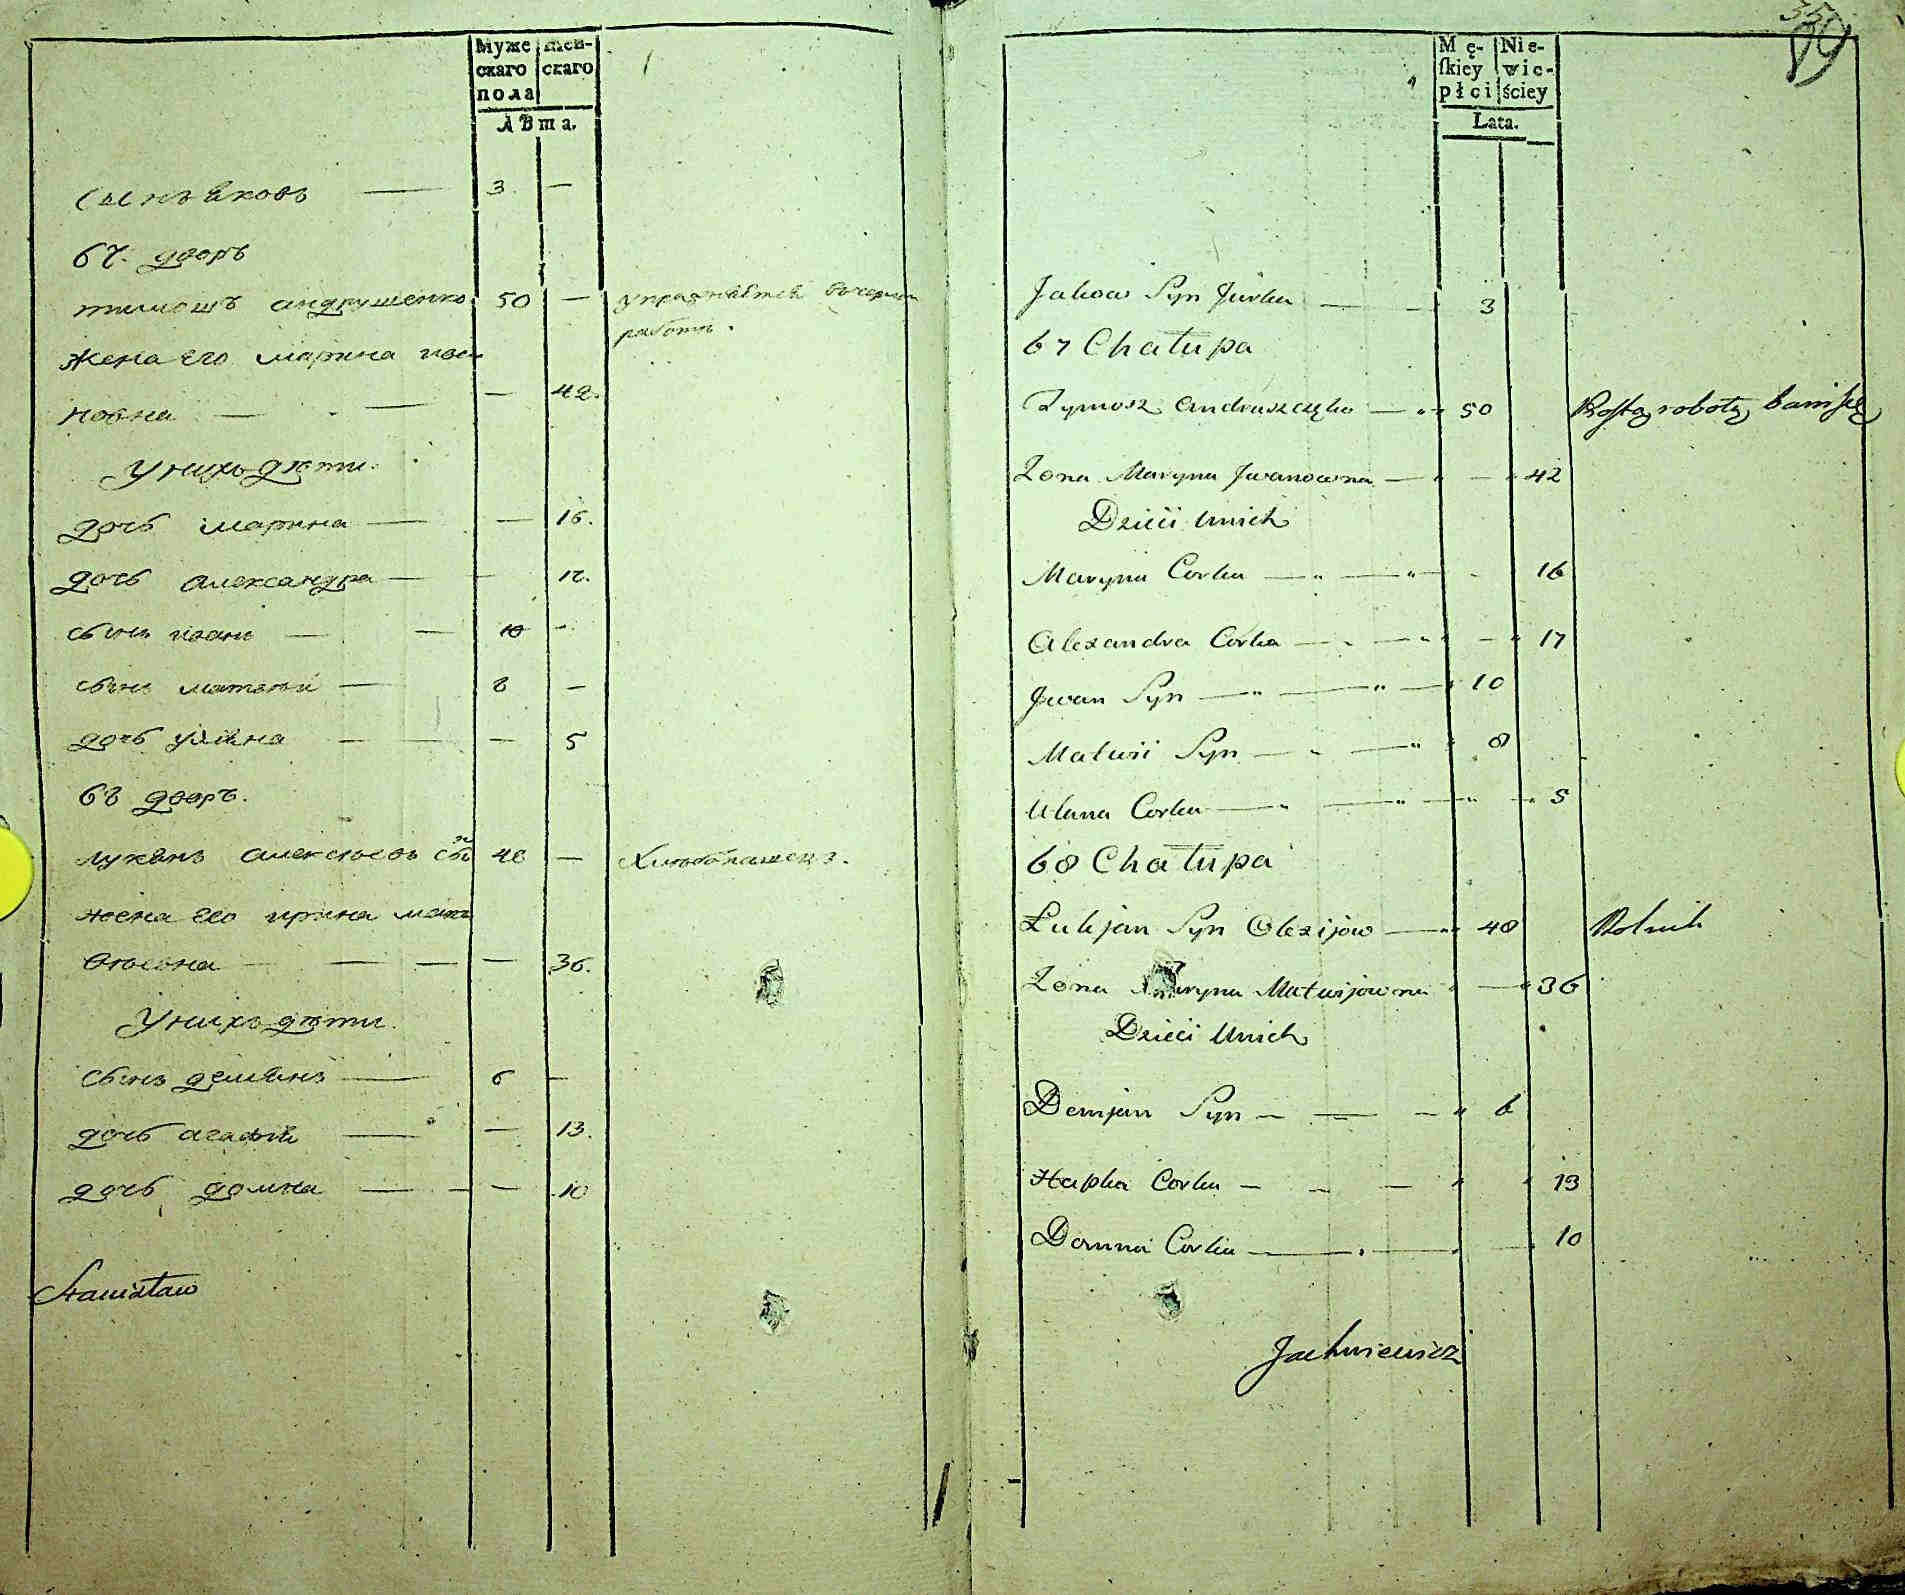 Муже
скаго
пола
жен-
скаго
Лѣта.
сынъ яковъ — 3 —
67. дворъ
тимошъ андрушенко 50 — упражняется вчерни
работы.
жена его марина ива
новна — — 42.
У нихъ дѣти.
дочь марина — — 16.
дочь александра — — 17.
сынъ иванъ — — 10 —
сынъ матвѣй — 8 —
дочь уляна — — 5
68 дворъ.
лукянъ алексѣевъ сынъ 48 — Хлѣбопашецъ.
жена его ирина мат
вѣевна — — 36.
У нихъ дѣти.
сынъ демянъ — 6 —
дочь агафия — — 13.
дочь домна — — 10
Stanisław
359
Mę-
skiey
płci
Nie-
wie-
ściey
Lata.
Jakow Syn Jurka — 3
67 Chałupa
Tymosz Andruszczęko — 50 Prostą robotą bawi się
Żona Maryna Jwanowna — 42
Dzieci Unich
Maryna Corka — 16
Alexandra Corka — 17
Jwan Syn — 10
Matwii Syn — 8
Ulana Corka — 5
68 Chałupa
Łukjan Syn Olexijow — 48 Rolnik
Żona Maryna Matwijowna — 36
Dzieci Unich
Demjan Syn — 6
Hapka Corka — 13
Domna Corka — 10
Jachniewicz